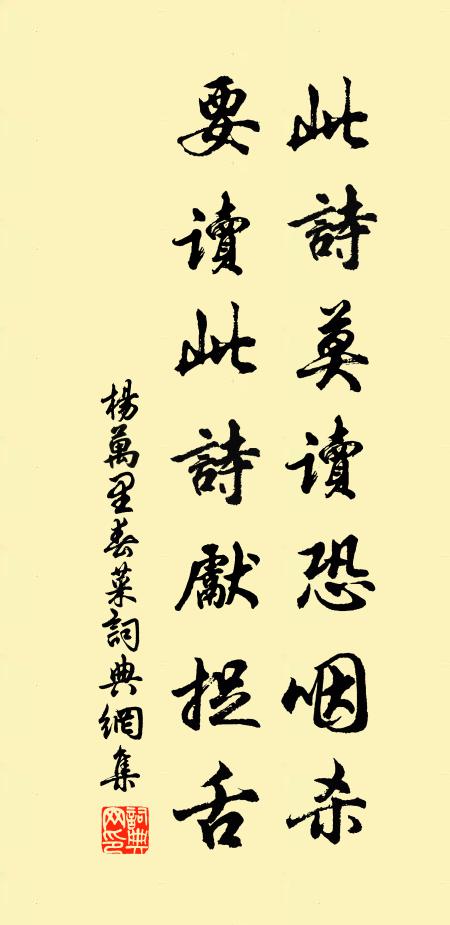 此詩莫读恐咽杀
要读此詩獻捉舌
楊萬里春菜詞典網集
詞典网印